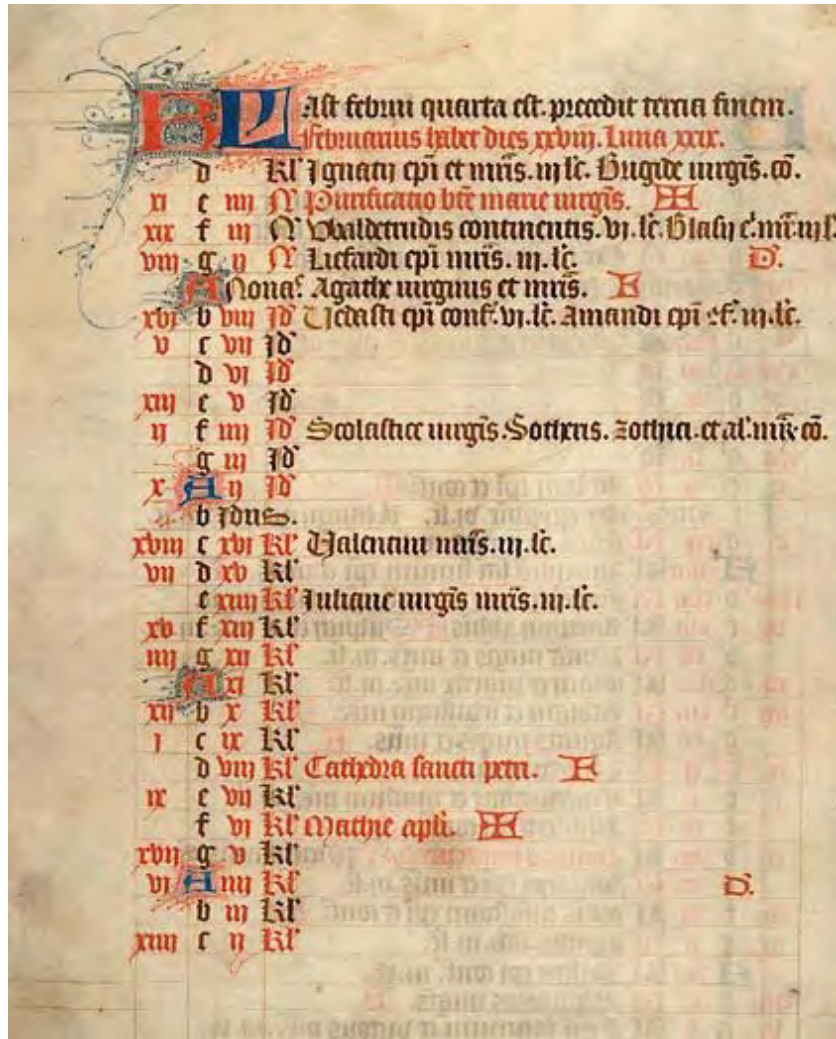 KL Ast februi quarta est. precedit tercia finem.
februarius habet dies xxviii. Luna xxix.
d Kl' Ignatii epi et mris. iij lc. Brigide uirgis. co.
xi e iiij N' Purificatio bte marie uirgis. FH
xix f iij N' Waldetrudis continentis. vi. lc. Blasij
viij g ij N' Liefardi epi mris. iij. lc. D.
A Nonas. Agathe uirginis et mris. F
xvi b viij Id' Vedasti epi conf. vi. lc. Amandi epi et iij. lc.
v c vij Id'
d vi Id'
xiij e v Id'
ij f iiij Id' Scolastice uirgis. Sotheris. zothici. et al. co.
g iij Id'
x A ij Id'
b Idus.
xviij c xvi Kl' Valentini mris. iij. lc.
vij d xv Kl'
e xiiij Kl' Juliane uirgis mris. iij. lc.
xv f xiij Kl'
iiij g xij Kl'
A xi Kl'
xij b x Kl'
i c ix Kl'
d viij Kl' Cathedra sancti petri. F
ix e vij Kl'
f vi Kl' Mathie apli.
xvij g v Kl'
vi A iiij Kl' D.
b iij Kl'
xiiij c ij Kl'